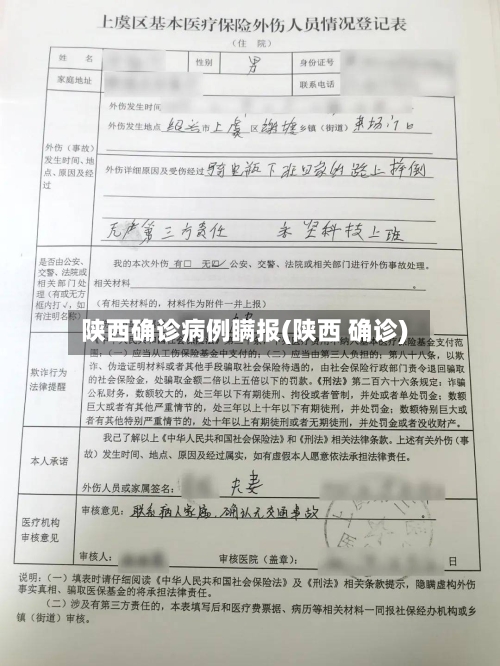 上虞区基本医疗保险外伤人员情况登记表
（住 院）
姓 名
性别
男
身份证号
家庭地址
联系电话
外伤（事故）发生时间、地点、原因及经过
外伤发生时间
外伤发生地点 绍兴市上虞区谢塘乡镇（街道）菜场门口
外伤详细原因及受伤经过 骑电瓶下班回家的路上摔倒
无第三方责任
科技上班
是否有由公安、交警、法院或相关部门处理（有或无方框内打√，如有注明名称）
我的本次外伤 有□ 无☑ 公安、交警、法院或相关部门进行外伤事故处理。
相关材料
（有相关材料的，材料作为附件一并上报）
陕西确诊病例瞒报(陕西 确诊)
欺诈行为法律提醒
围：（一）应当从工伤保险基金中支付的；（二）应当由第三人负担的，第八十八条，以欺
诈、伪造证明材料或者其手段骗取社会保险待遇的，由社会保险行政部门责令退回骗取
的社会保险金，处骗取金额二倍以上五倍以下的罚款。《刑法》第二百六十六条规定：诈骗
公私财务，数额较大的，处三年以下有期徒刑、拘役或者管制，并处或者单处罚金；数额
巨大或者有其他严重情节的，处三年以上十年以下有期徒刑，并处罚金；数额特别巨大或
者有其他特别严重情节的，处十年以上有期徒刑或者无期徒刑，并处罚金或者没收财产。
本人承诺
我已了解以上《中华人民共和国社会保险法》和《刑法》相关法律条款。上述有关外伤（事
故）发生时间、地点、原因及经过属实，如有虚假本人愿意依法承担法律责任。
外伤人员或家属签名：
夫妻
医疗机构审核意见
审核意见：联系病人家属，确认无交通事故
审核人：
审核医院（盖章）：
日
说明：（一）填表时请仔细阅读《中华人民共和国社会保险法》及《刑法》相关条款提示，隐瞒虚构外伤
事实真相、骗取医保基金的将承担法律责任。
（二）涉及有第三方责任的，本表填写后和医疗费票据、病历等相关材料一同报社保经办机构或乡
镇（街道）审核。